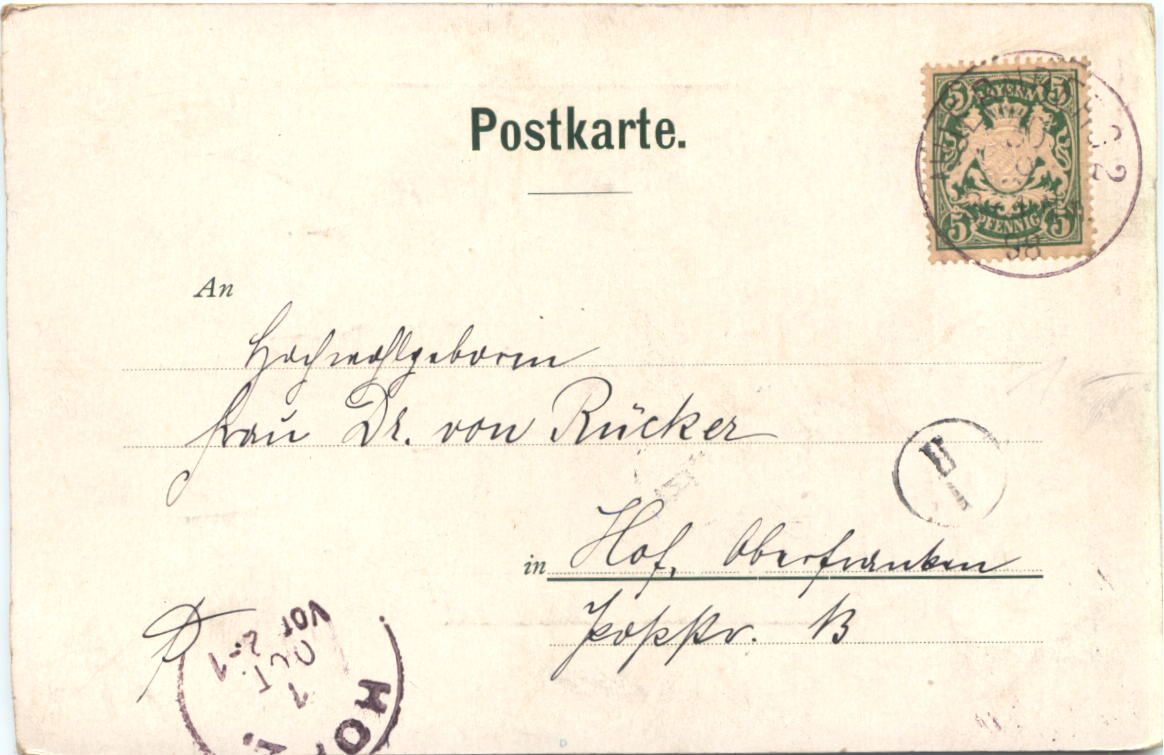 Postkarte.
5 BAYERN 5
5 PFENNIG 5
2
30
9
98
An
Hochwohlgeboren
Frau Dr. von Rücker
in Hof, Oberfranken
B
HOF
1
OCT
VOR